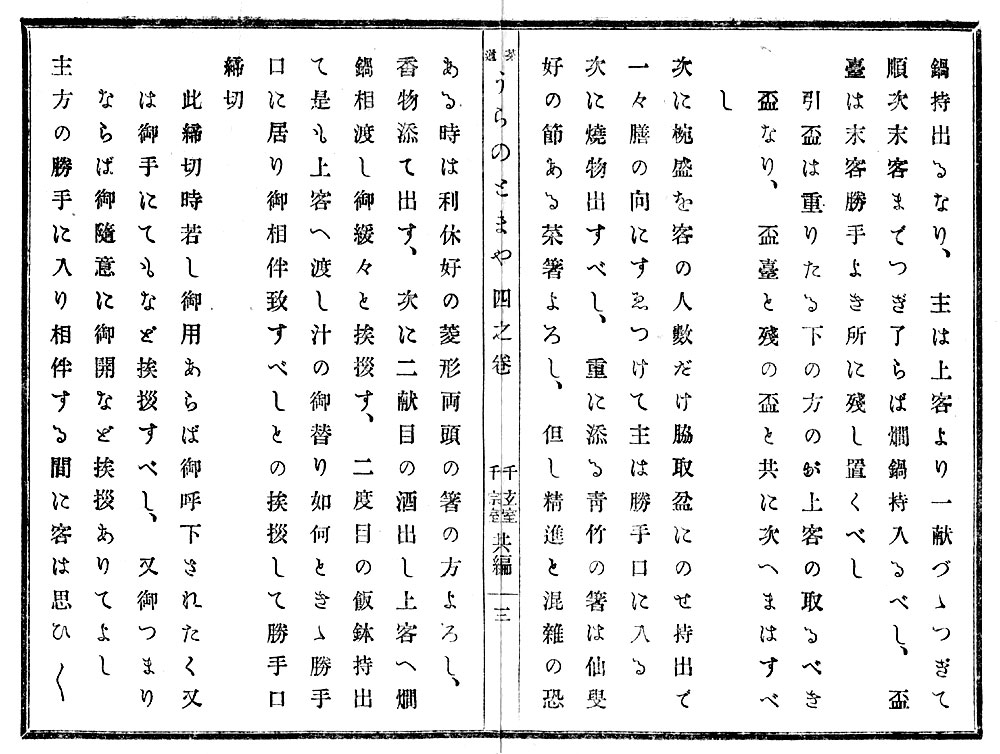 鍋持出るなり、主は上客より一献づゝつぎて
順次末客までつぎ了らば燗鍋持入るべし、盃
臺は末客勝手よき所に殘し置くべし
引盃は重りたる下の方のが上客の取るべき
盃なり、盃臺と殘の盃と共に次へまはすべ
し
次に椀盛を客の人數だけ脇取盆にのせ持出で
一々膳の向にすゑつけて主は勝手口に入る
次に燒物出すべし、重に添る靑竹の箸は仙叟
好の節ある菜箸よろし、但し精進と混雜の恐
茶道 うらのとまや 四之卷 千玄室 千宗室 共編 三
ある時は利休好の菱形両頭の箸の方よろし、
香物添て出す、次に二献目の酒出し上客へ燗
鍋相渡し御緩々と挨拶す、二度目の飯鉢持出
て是も上客へ渡し汁の御替り如何ときゝ勝手
口に居り御相伴致すべしとの挨拶して勝手口
締切
此締切時若し御用あらば御呼下されたく又
は御手にてもなど挨拶すべし、又御つまり
ならば御隨意に御開など挨拶ありてよし
主方の勝手に入り相伴する間に客は思ひ〱